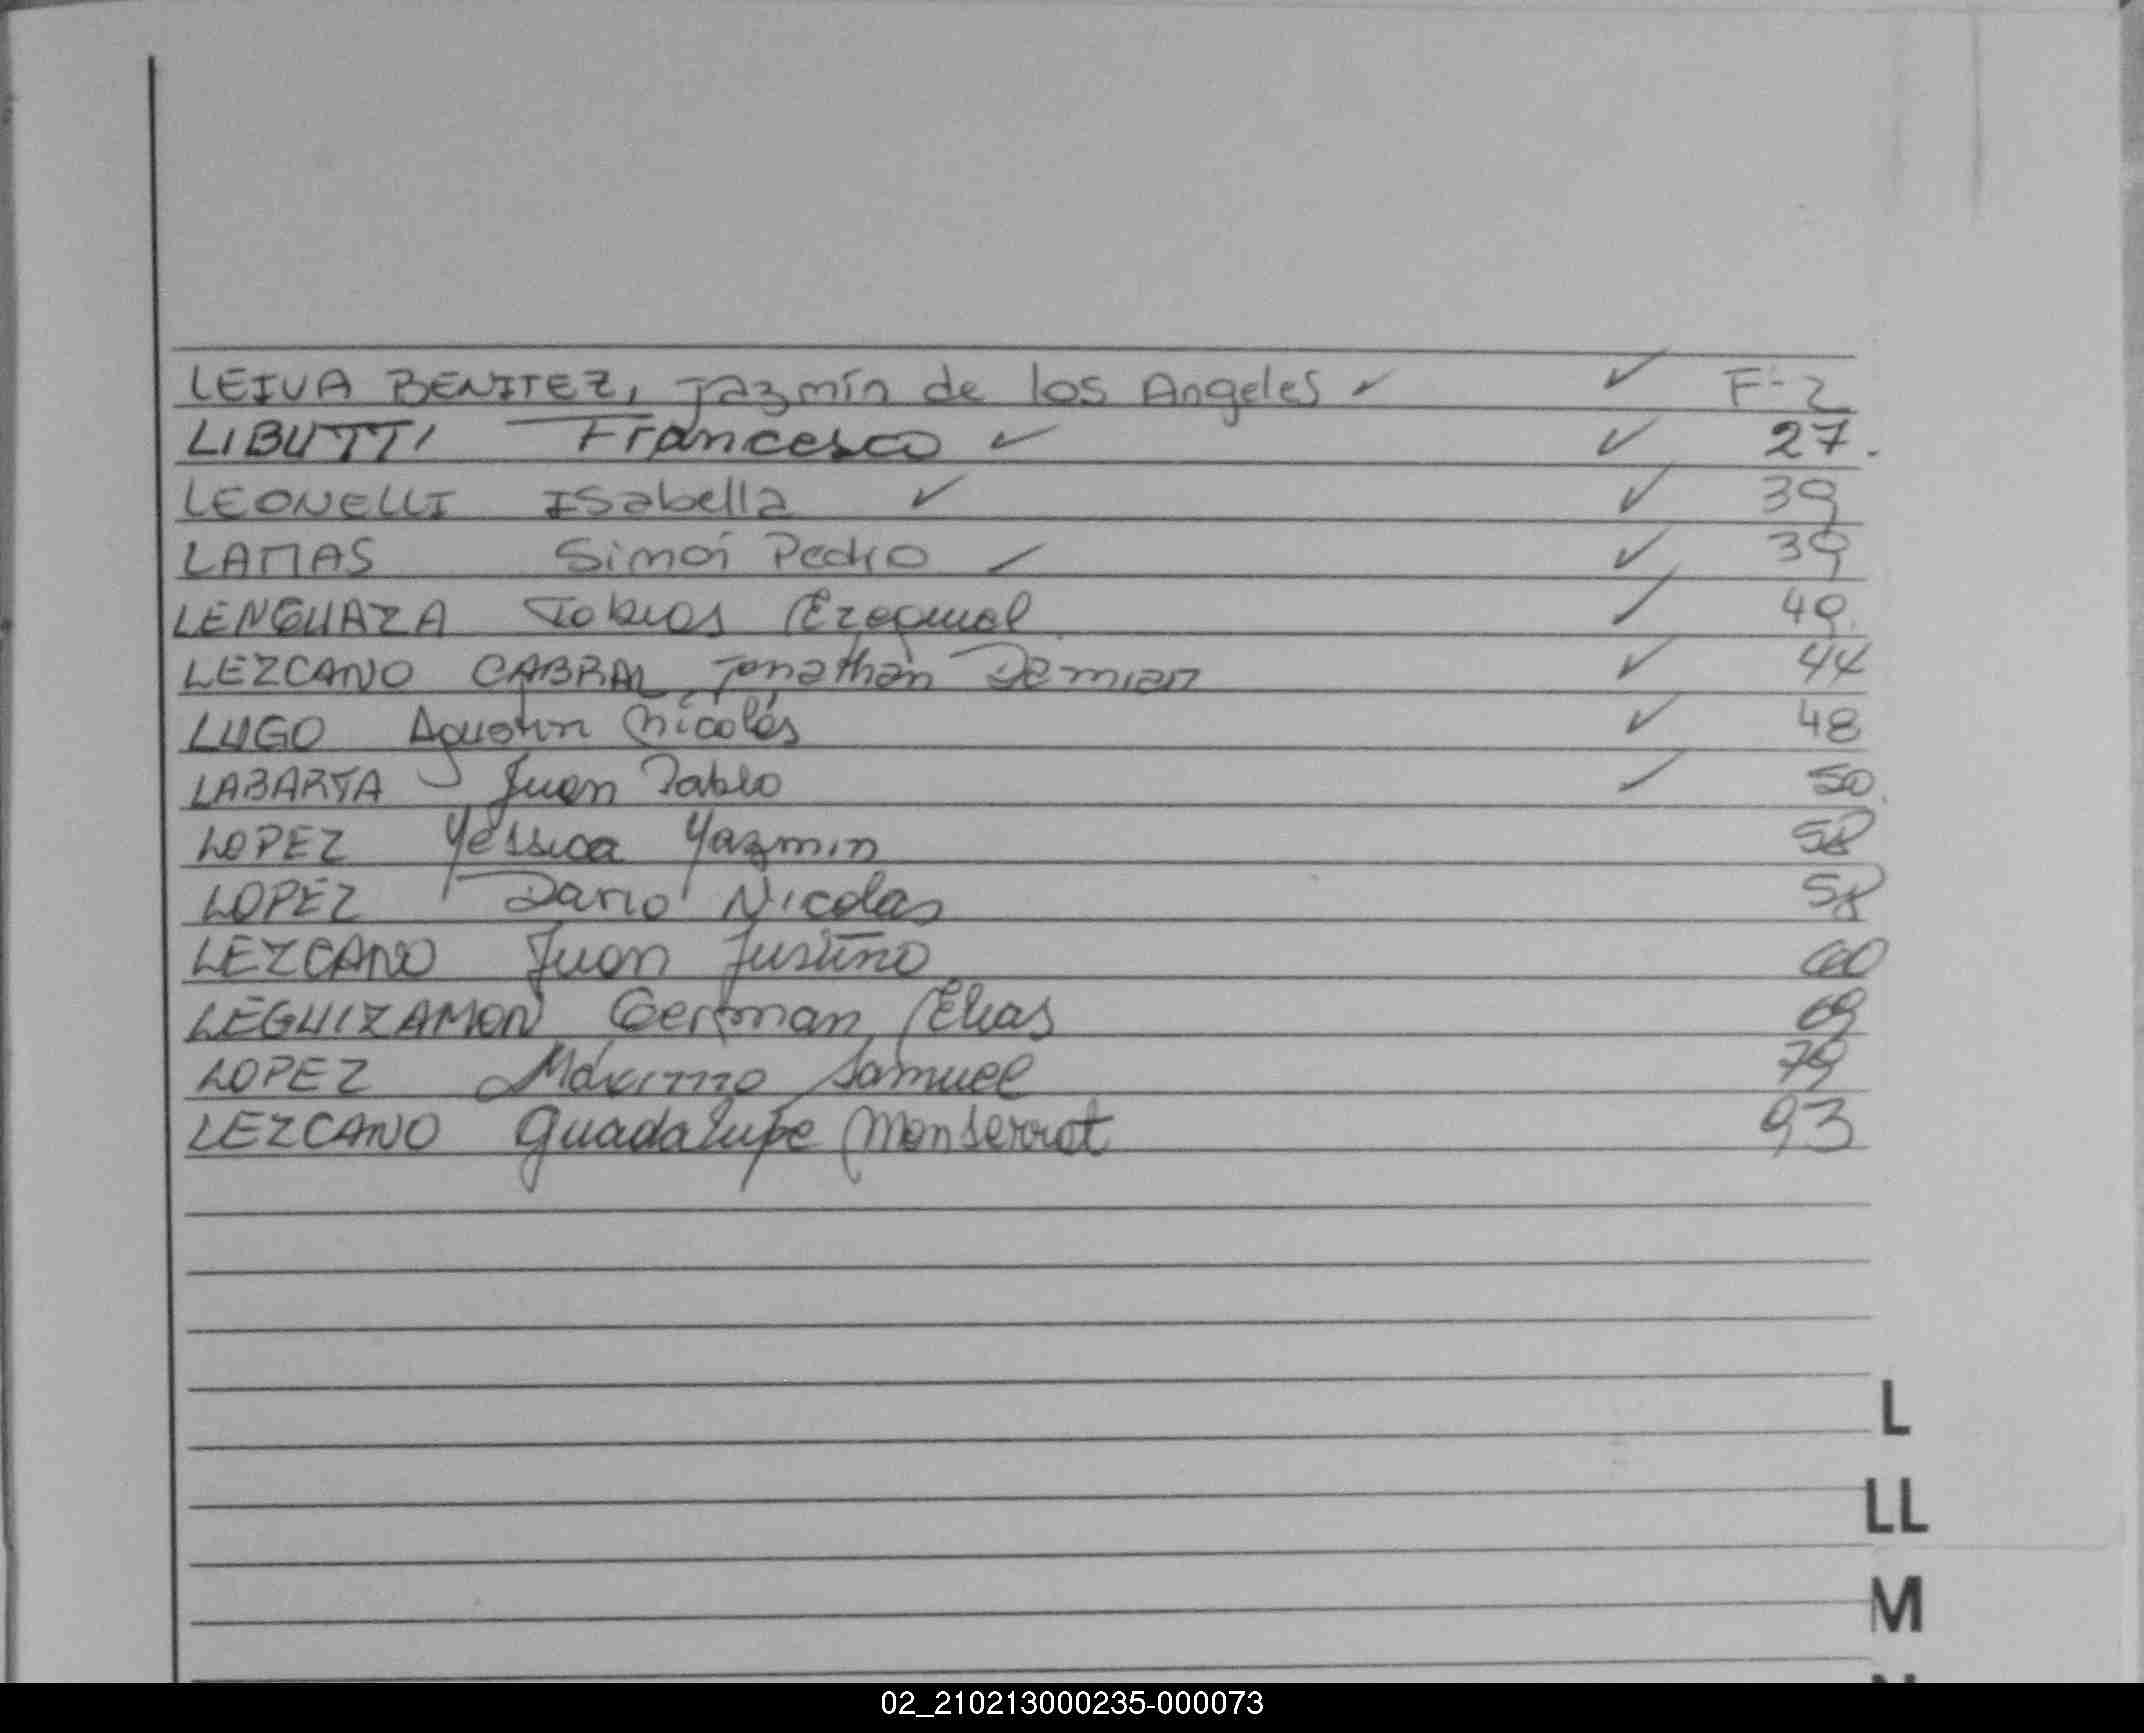 LEIVA BENITEZ, Jazmín de los Angeles ✓ ✓ F-2
LIBUTTI Francesco ✓ ✓ 27.
LEONELLI Isabella ✓ ✓ 39
LAMAS Pedro ✓ ✓ 39
LENGUAZA Tobias Ezequiel ✓
LEZCANO CABRAL Jonathan Damian ✓ 44
LUGO Agustin Nicolás ✓ 48
LABARTA Juan Pablo ✓ 50
LOPEZ Yessica Yazmin 58
LOPEZ Dario Nicolas 58
LEZCANO Juan Justino 60
LEGUIZAMON German Elias 69
LOPEZ Máximo Samuel 79
LEZCANO Guadalupe Monserrat 93
L
LL
M
02_210213000235-000073